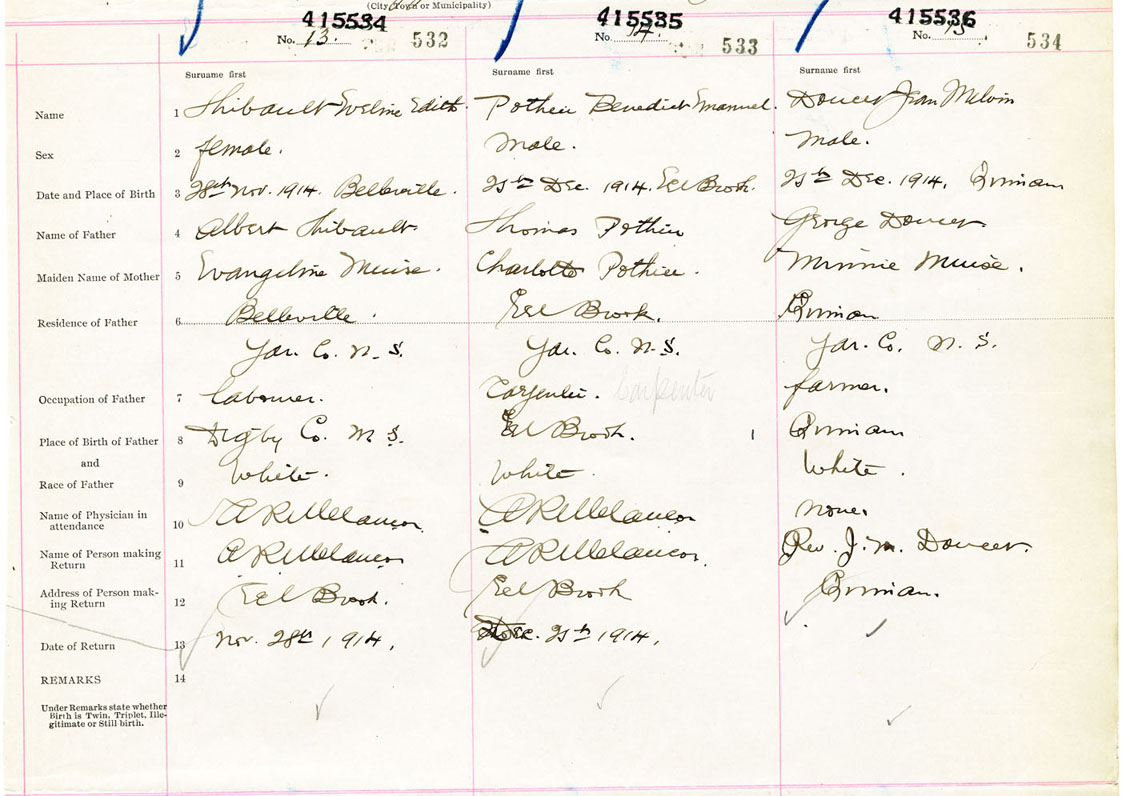 (City, Town or Municipality)
415534 415535 415536
No. 13. 532 No. 14. 533 No. 15. 534
Surname first Surname first Surname first
Name 1 Thibault Eveline Edith. Pothier Benedict Emanuel. Doucet Jean Melvin
Sex 2 female. Male. Male.
Date and Place of Birth 3 28th Nov. 1914. Belleville. Dec. 1914. Eel Brook. Dec. 1914, Quinan
Name of Father 4 Albert Thibault Thomas Pothier George Doucet
Maiden Name of Mother 5 Evangeline Muise. Charlotte Pothier. Minnie Muise.
Residence of Father 6 Belleville. Eel Brook. Quinan
Yar. Co. N. S. Yar. Co. N. S. Yar. Co. N. S.
Occupation of Father 7 Labourer. Carpenter. Carpenter farmer.
Place of Birth of Father 8 Digby Co. N S. Eel Brook. Quinan
and
Race of Father 9 White. White White.
Name of Physician in
attendance 10 A R Melancon A R Melancon none.
Name of Person making
Return 11 A R Melancon A R Melancon. Rev. J. M. Doucet.
Address of Person mak-
ing Return 12 Eel Brook. Eel Brook Quinan.
Date of Return 13 Nov. 28th, 1914. Dec. 1914.
REMARKS 14
Under Remarks state whether
Birth is Twin, Triplet, Ille-
gitimate or Still birth.